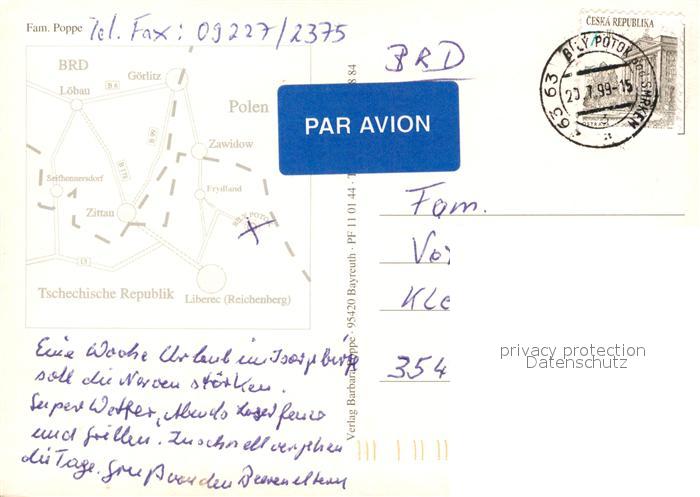 Fam. Poppe Tel. Fax: 09227/2375
BRD
ČESKÁ REPUBLIKA
BÍLÝ POTOK POD SMRKEM
463 63
20.7.99-15
PAR AVION
BRD
Görlitz
Löbau
B 6
Polen
B 99
B 178
Zawidow
Seifhennersdorf
Frydland
Zittau
BILY POTOK
Tschechische Republik
Liberec (Reichenberg)
Verlag Barbara Poppe · 95420 Bayreuth · PF 11 01 44
Fam.
354
privacy protection
Datenschutz
Eine Woche Urlaub im Isergebirge
soll die Nerven stärken.
Super Wetter, Abends Lagerfeuer
und Grillen. Zu schnell vergehen
die Tage. Gruß von den Beereneltern